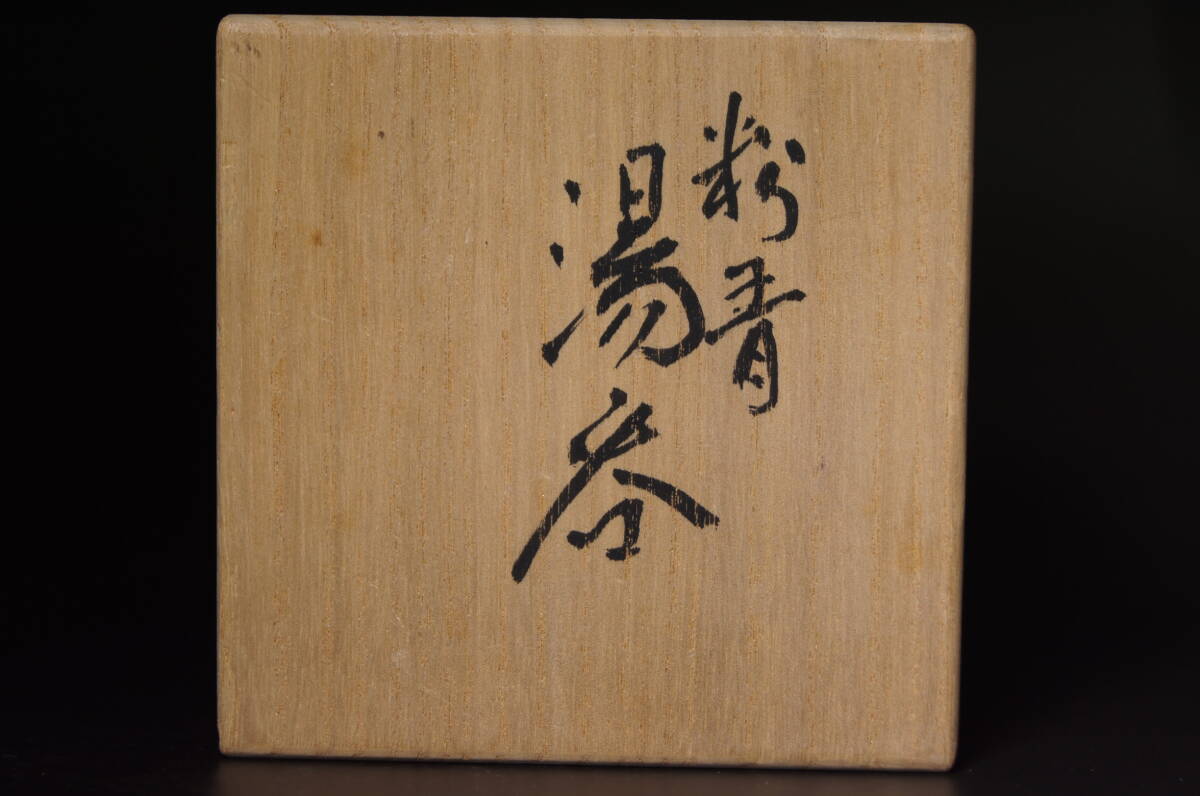 粉青
湯呑